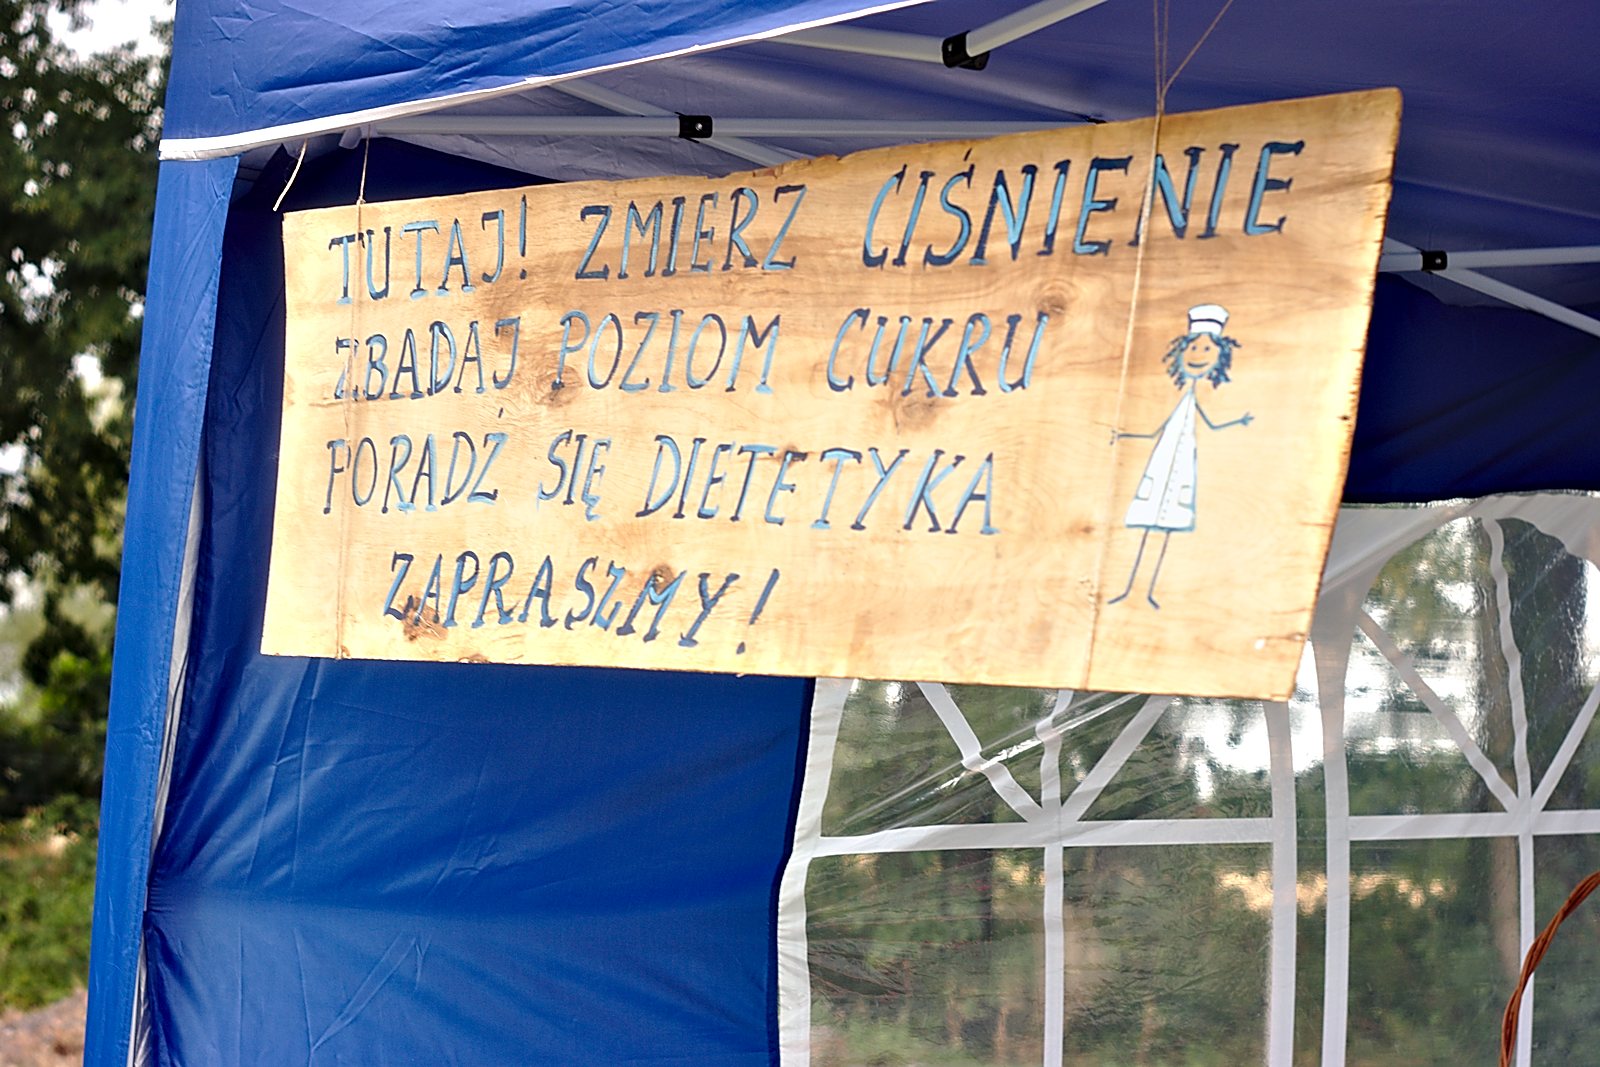 TUTAJ! ZMIERZ CIŚNIENIE
ZBADAJ POZIOM CUKRU
PORADŹ SIĘ DIETETYKA
ZAPRASZMY!